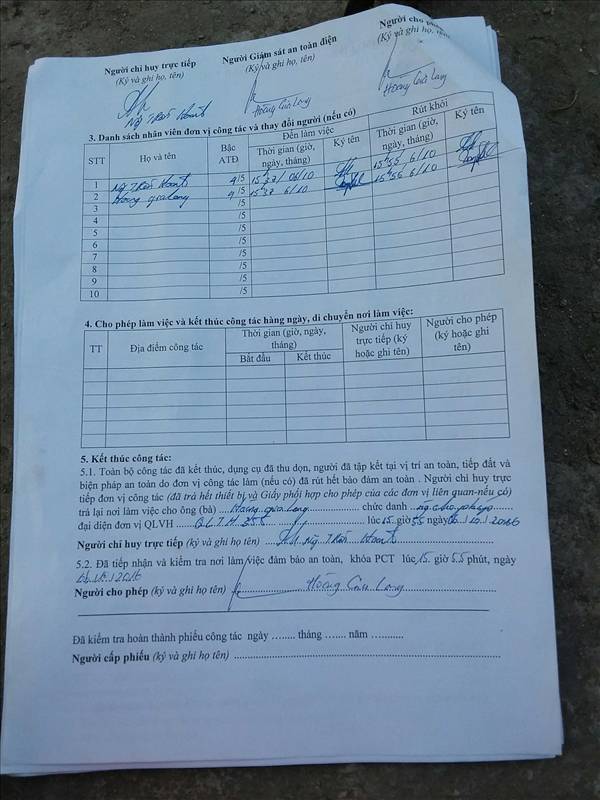 Người chỉ huy trực tiếp
(Ký và ghi họ, tên)
Người Giám sát an toàn điện
(Ký và ghi họ, tên)
Người cho
(Ký và ghi họ,
Ng Trần
Hoàng Gia Long
Hoàng Gia Long
3. Danh sách nhân viên đơn vị công tác và thay đổi người (nếu có)
STT Họ và tên Bậc ATĐ Đến làm việc Rút khỏi
Thời gian (giờ, ngày, tháng) Ký tên Thời gian (giờ, ngày, tháng) Ký tên
1 Ng Trần 4/5 6/10 15h55 6/10
2 Hoàng gia Long 4/5 6/10 15h55 6/10
3 /5
4 /5
5 /5
6 /5
7 /5
8 /5
9 /5
10 /5
4. Cho phép làm việc và kết thúc công tác hàng ngày, di chuyển nơi làm việc:
TT Địa điểm công tác Thời gian (giờ, ngày, tháng) Người chỉ huy trực tiếp (ký hoặc ghi tên) Người cho phép (ký hoặc ghi tên)
Bắt đầu Kết thúc
5. Kết thúc công tác:
5.1. Toàn bộ công tác đã kết thúc, dụng cụ đã thu dọn, người đã tập kết tại vị trí an toàn, tiếp đất và
biện pháp an toàn do đơn vị công tác làm (nếu có) đã rút hết bảo đảm an toàn . Người chỉ huy trực
tiếp đơn vị công tác (đã trả hết thiết bị và Giấy phối hợp cho phép của các đơn vị liên quan-nếu có)
trả lại nơi làm việc cho ông (bà) .... Hoàng gia Long ........ chức danh ..ng cho phép.....
đại diện đơn vị QLVH ............ lúc 15 giờ 55 ngày
Người chỉ huy trực tiếp (ký và ghi họ tên) ..... Ng Trần
5.2. Đã tiếp nhận và kiểm tra nơi làm việc đảm bảo an toàn, khóa PCT lúc 15. giờ 55 phút, ngày
Người cho phép (ký và ghi họ tên) Hoàng Gia Long
Đã kiểm tra hoàn thành phiếu công tác ngày ........ tháng ....... năm ...........
Người cấp phiếu (ký và ghi họ tên) ................................................